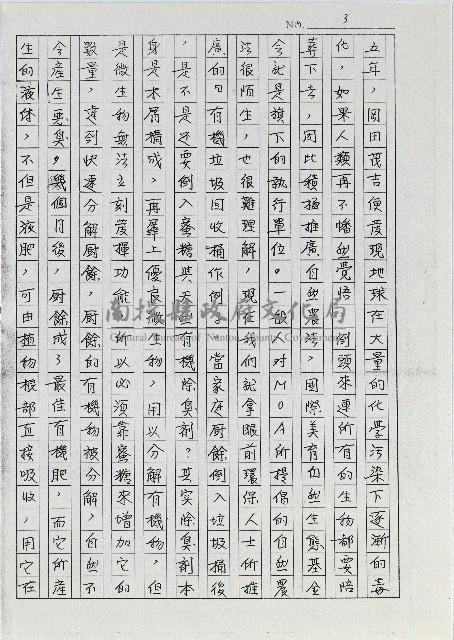 NO. 3
五年，岡田茂吉便發現地球在大量的化學污染下逐漸的毒
化，如果人類再不幡然覺悟，倒頭來連所有的生物都要陪
葬下去，因此積極推廣自然農法，國際美育自然生態基金
會就是旗下的執行單位。一般對MOA所提倡的自然農
法很陌生，也很難理解，現在我們就拿眼前環保人士所推
廣的「有機垃圾回收桶」作例子，當家庭廚餘倒入垃圾桶後
，是不是還要倒入蜜糖與天然有機除臭劑？其實除臭劑本
身是木屑構成，再羼上優良微生物，用以分解有機物，但
是微生物無法立刻發揮功能，所以必須靠蜜糖來增加它的
數量，達到快速分解廚餘，廚餘的有機物被分解，自然不
會產生惡臭，幾個月後，廚餘成了最佳有機肥，而它所產
生的液体，不但是液肥，可由植物根部直接吸收，用它在
南投縣政府文化局
Cultural Bureau of Nantou County Government